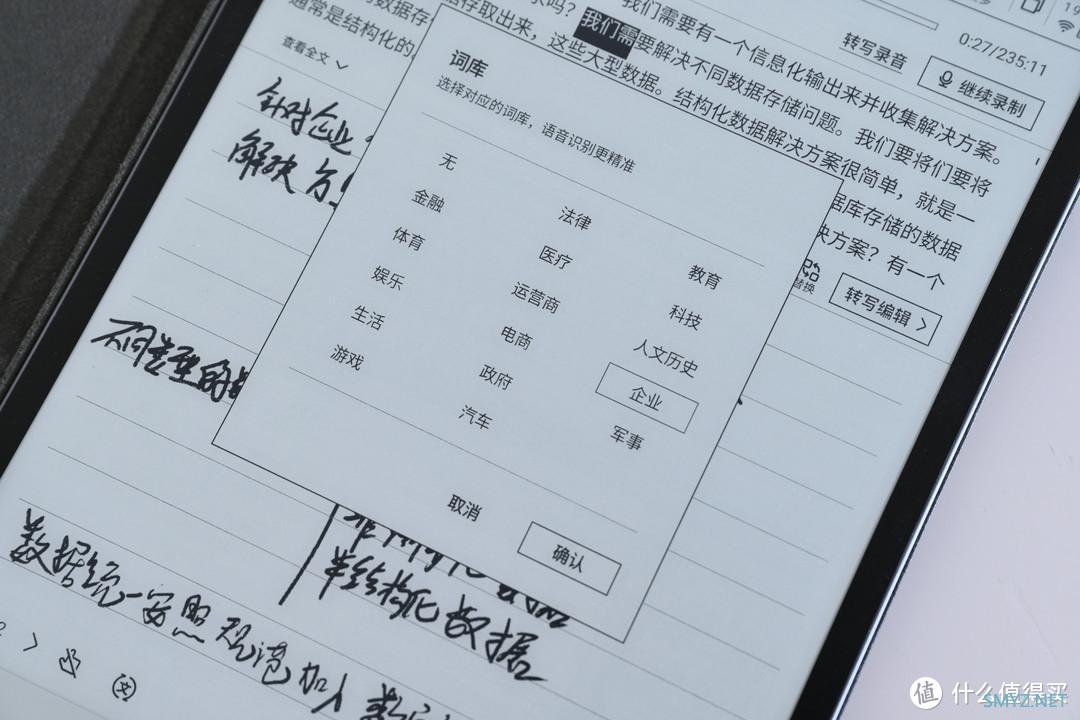 我们需要有一个信息化输出来并收集解决方案。
我们需要解决不同数据存储问题。我们要将们要将
存取出来，这些大型数据。结构化数据解决方案很简单，就是一
据库存储的数据
决方案？有一个
通常是结构化的
查看全文
转写录音
0:27/235:11
继续录制
替换
转写编辑
词库
选择对应的词库，语音识别更精准
无 法律 教育
金融 医疗 科技
体育 运营商 人文历史
娱乐 电商 企业
生活 政府 军事
游戏 汽车
取消 确认
针对企业
解决方
不同类型的
半结构化数据
数据统一安照规范加入
值 什么值得买
SMYZ.NET